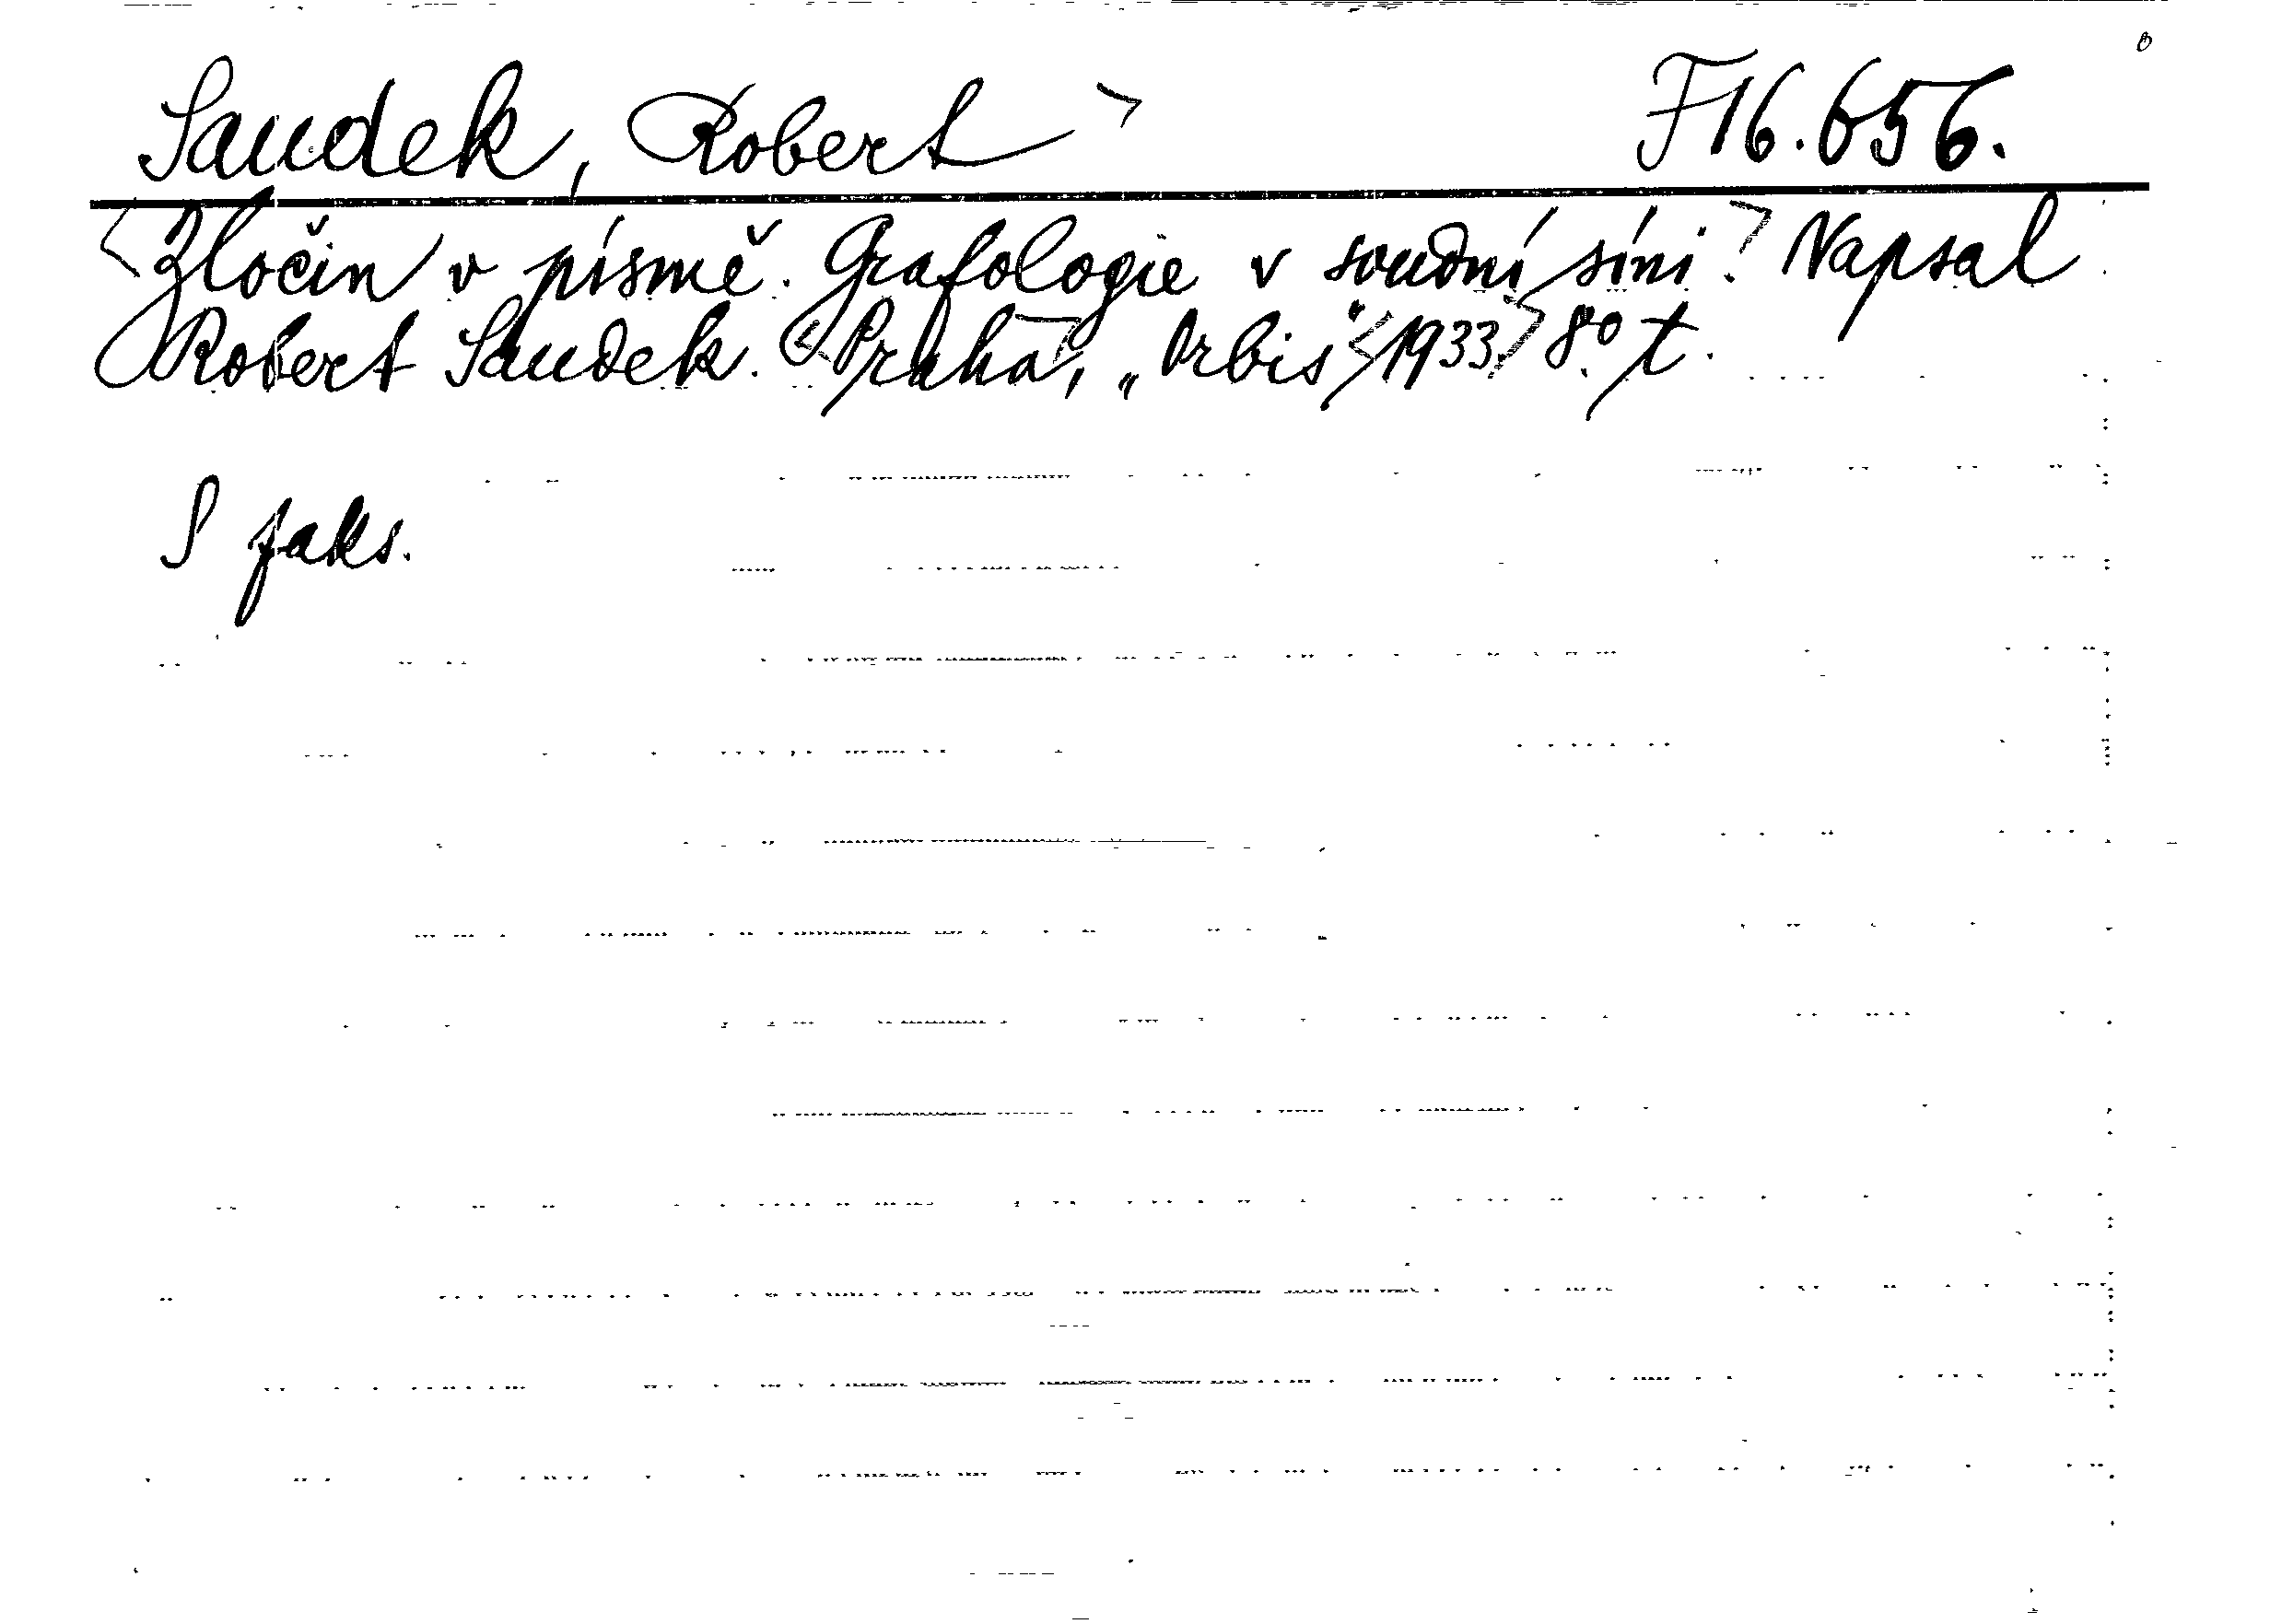 Saudek, Robert F16.656.
Zločin v písmě. Grafologie v soudní síni. Napsal
Robert Saudek. Praha, „Orbis“ 1933. 8.° t.
S faks.